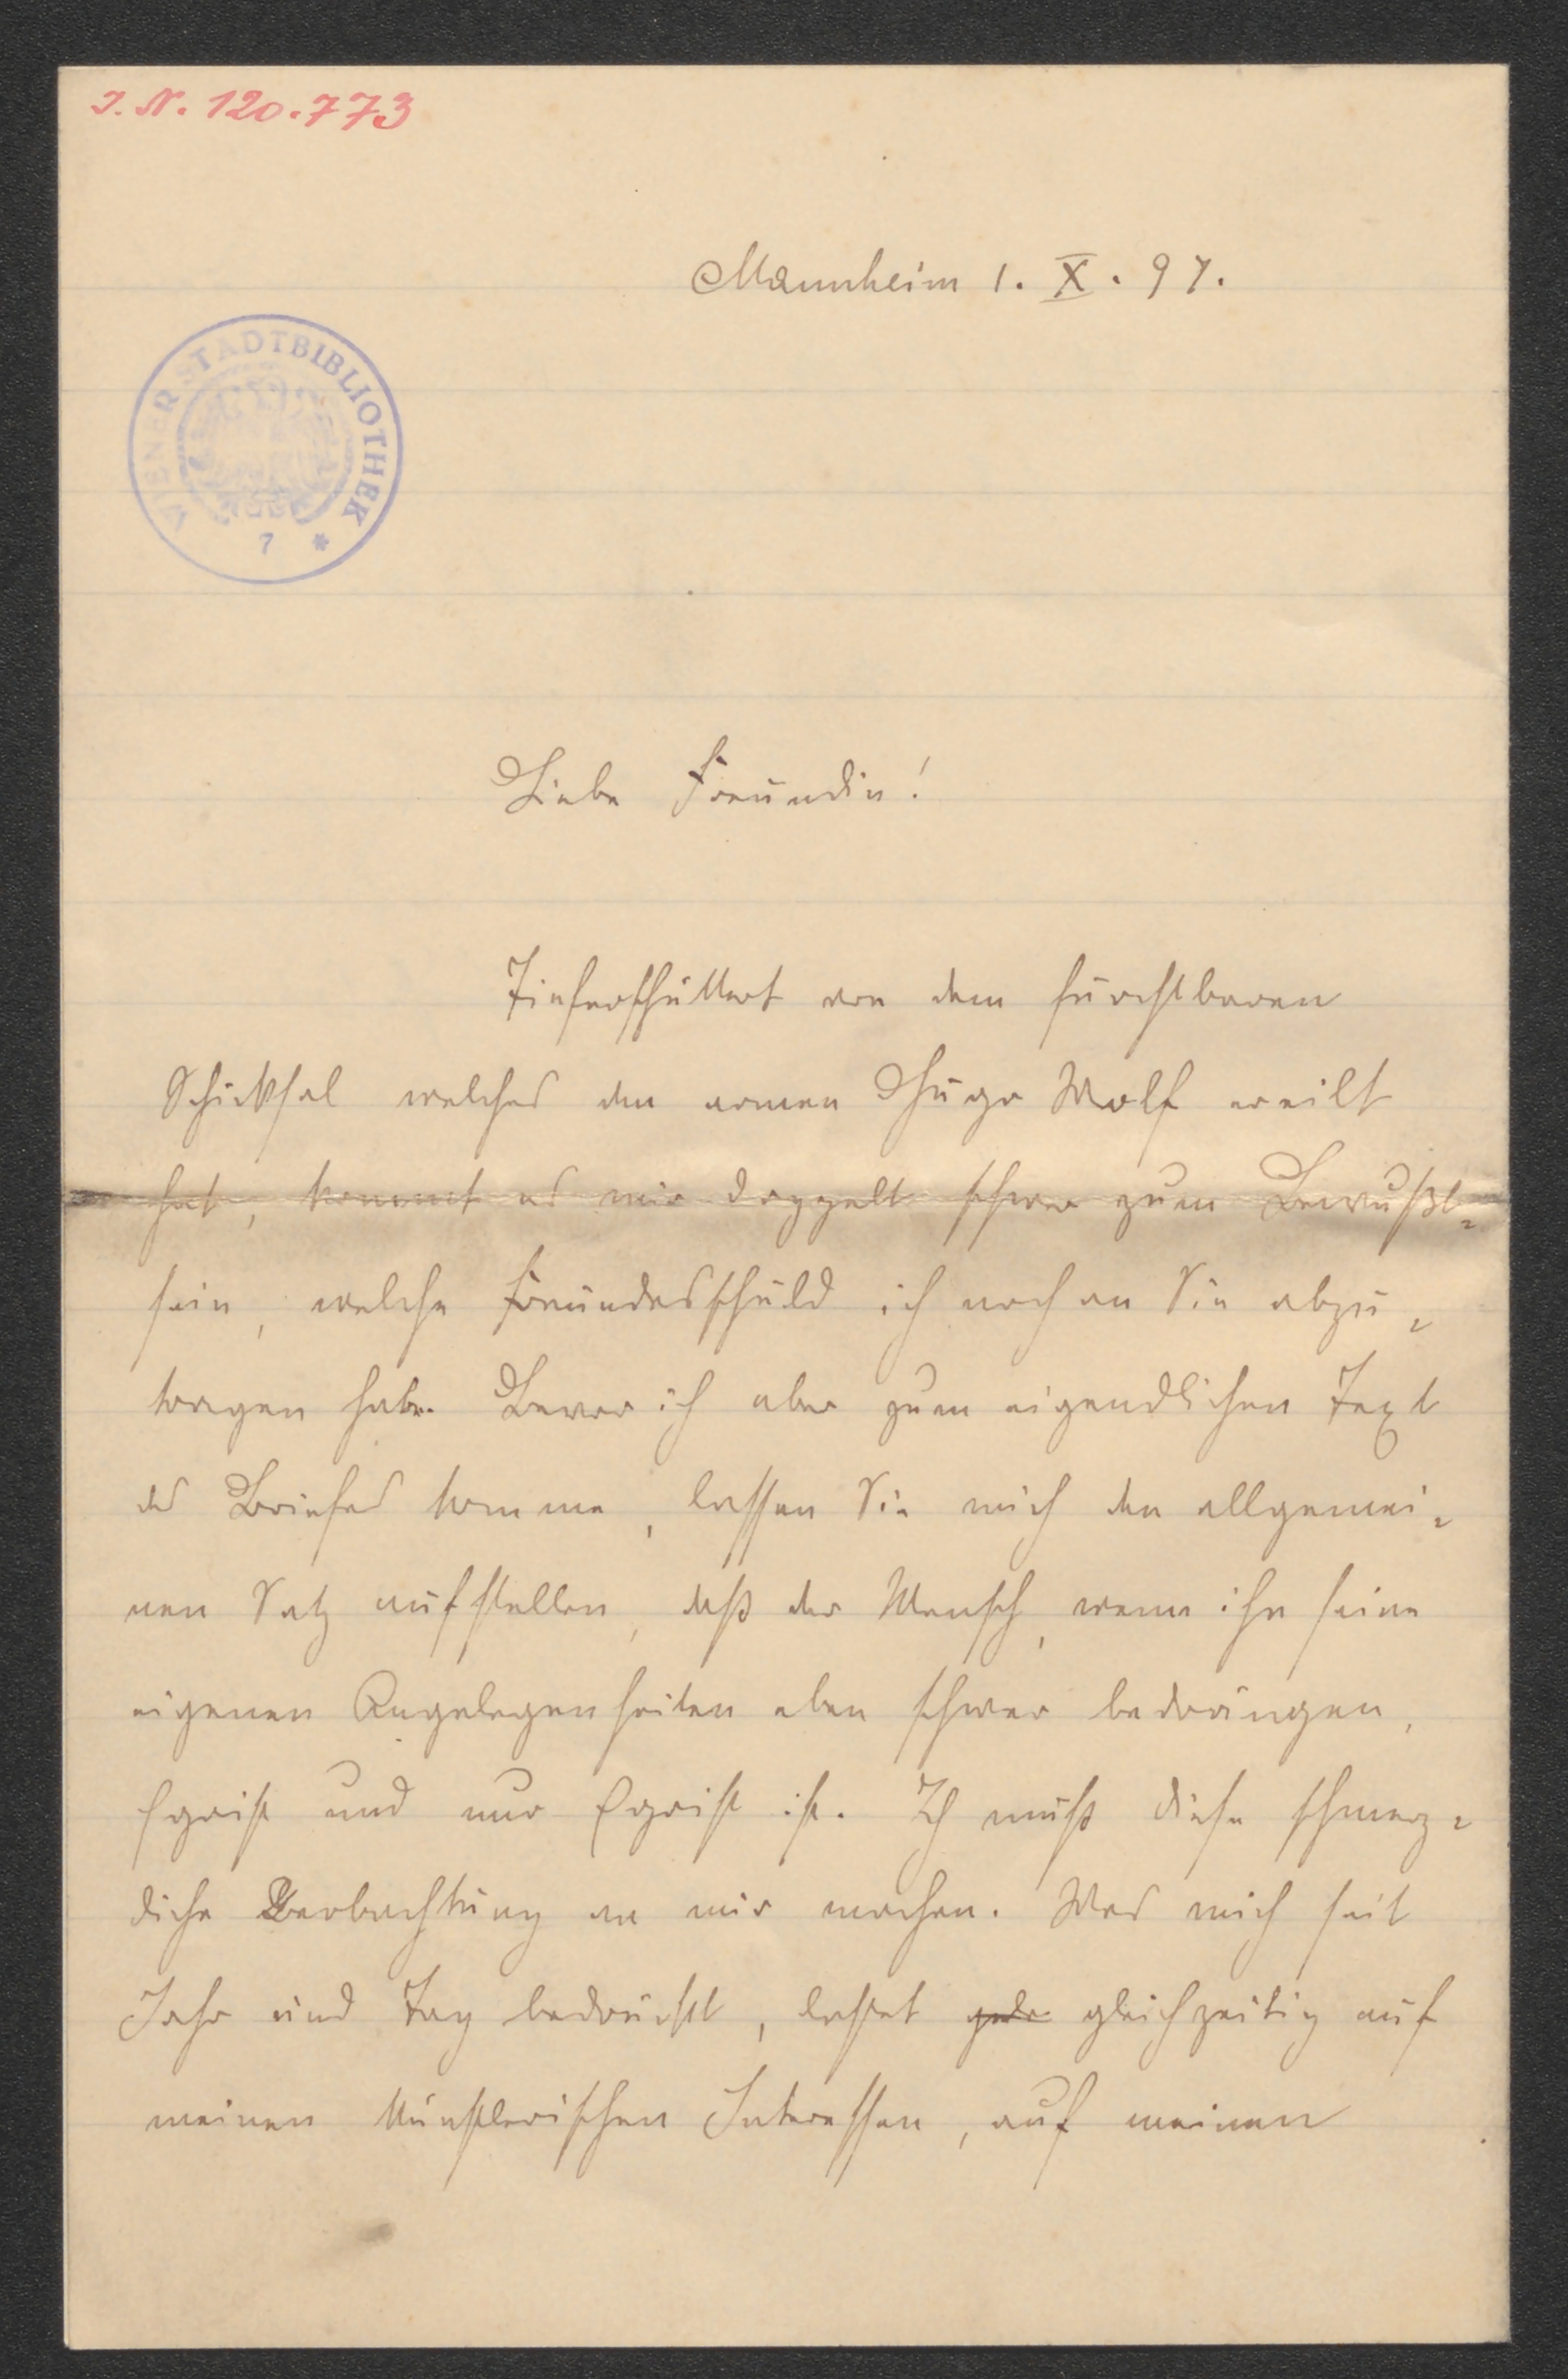 I. N. 120.773
Mannheim 1. X. 97.
WIENER STADTBIBLIOTHEK
7 *
Liebe Freundin!
Tieferschüttert von dem furchtbaren
Schicksal welches den armen Hugo Wolf ereilt
hat, kommt es mir doppelt schwer zum Bewußt-
sein, welche Freundesschuld ich noch an Sie abzu-
tragen habe. Bevor ich aber zum eigendlichen Text
des Briefes komme, lassen Sie mich den allgemei-
nen Satz aufstellen, daß der Mensch, wenn ihn seine
eigenen Angelegenheiten eben schwer bedrängen,
Egoist und nur Egoist ist. Ich muß diese schmerz-
liche Beobachtung an mir machen. Was mich seit
Jahr und Tag bedrückt, lastet gleichzeitig auf
meinen künstlerischen Interessen, auf meinen